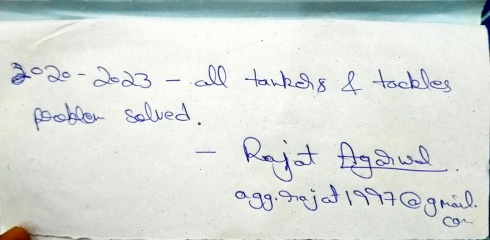 2020-2023 - all tankers & tackles
problem solved.
- Rajat Agarwal
agg.rajat1997@gmail.
com